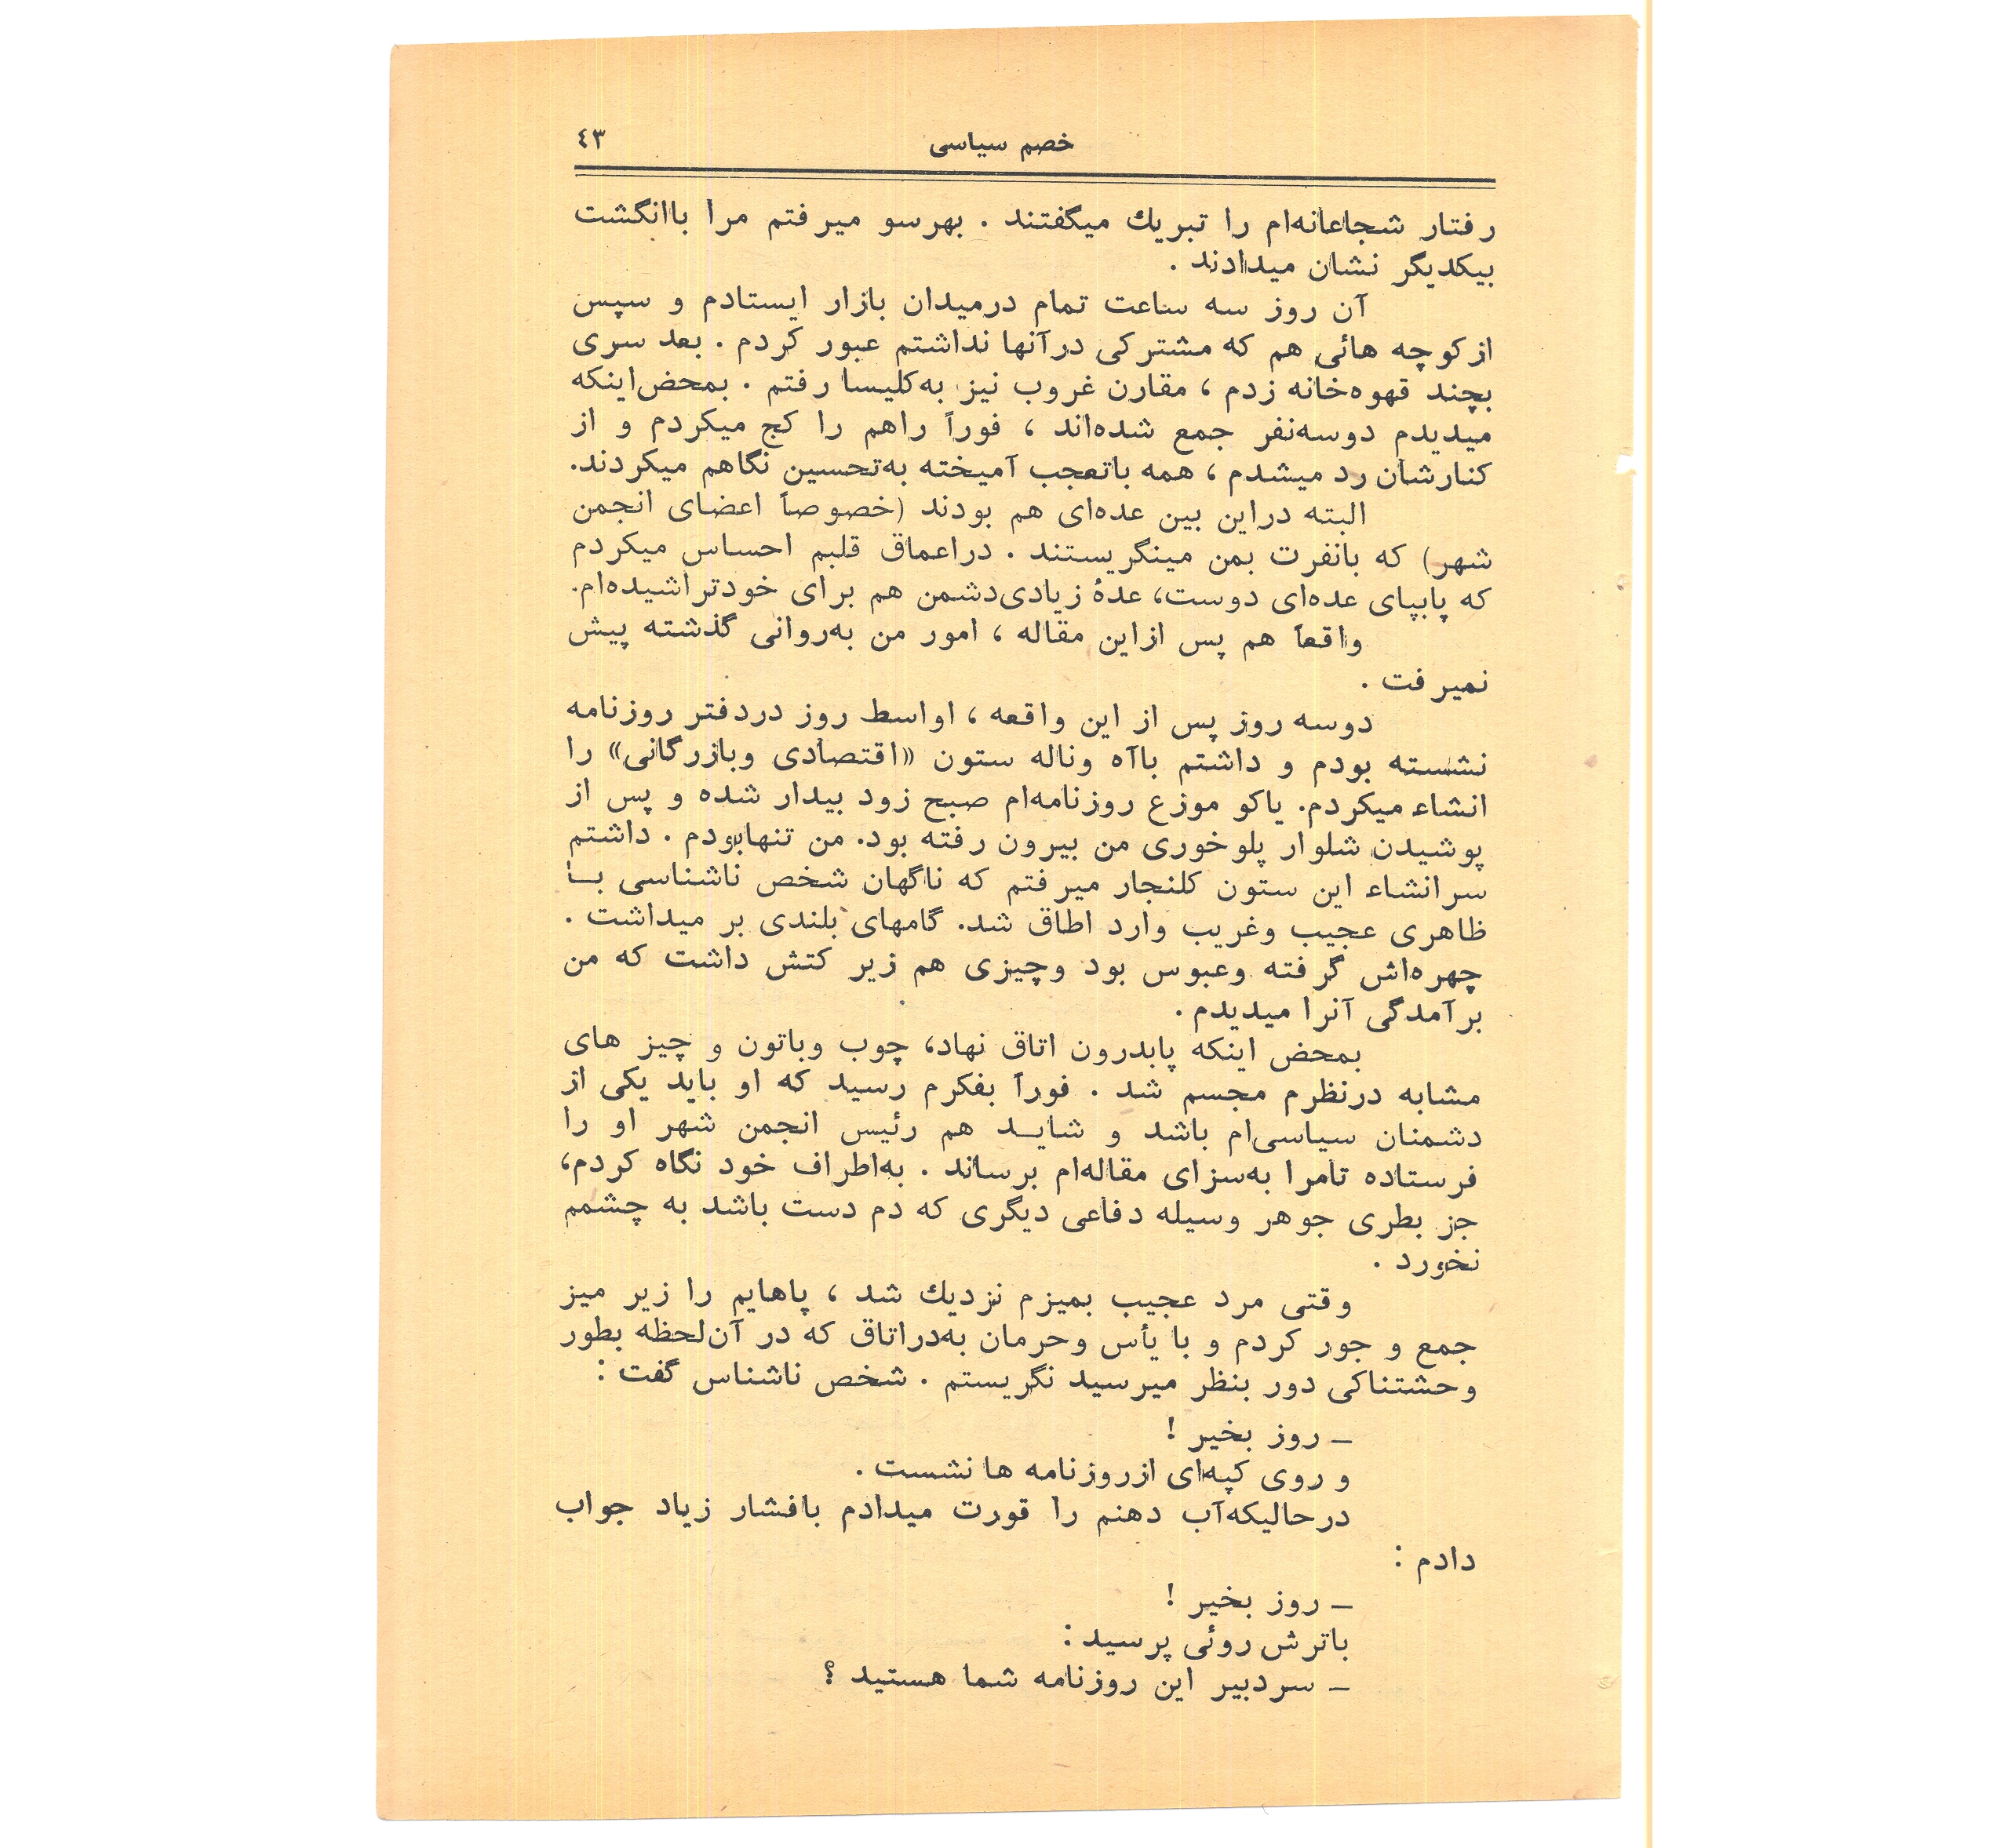 خصم سیاسی ٤٣
رفتار شجاعانه‌ام را تبریك میگفتند . بهرسو میرفتم مرا باانگشت
بیکدیگر نشان میدادند .
آن روز سه ساعت تمام درمیدان بازار ایستادم و سپس
ازکوچه هائی هم که مشترکی درآنها نداشتم عبور کردم . بعد سری
بچند قهوه‌خانه زدم ، مقارن غروب نیز به‌کلیسا رفتم . بمحض‌اینکه
میدیدم دوسه‌نفر جمع شده‌اند ، فوراً راهم را کج میکردم و از
کنارشان رد میشدم ، همه باتعجب آمیخته به‌تحسین نگاهم میکردند.
البته دراین بین عده‌ای هم بودند (خصوصاً اعضای انجمن
شهر) که بانفرت بمن مینگریستند . دراعماق قلبم احساس میکردم
که پابپای عده‌ای دوست، عدهٔ زیادی‌دشمن هم برای خودتراشیده‌ام.
واقعاً هم پس ازاین مقاله ، امور من به‌روانی گذشته پیش
نمیرفت .
دوسه روز پس از این واقعه ، اواسط روز دردفتر روزنامه
نشسته بودم و داشتم باآه وناله ستون «اقتصادی وبازرگانی» را
انشاء میکردم. یاکو موزع روزنامه‌ام صبح زود بیدار شده و پس از
پوشیدن شلوار پلوخوری من بیرون رفته بود. من تنهابودم . داشتم
سرانشاء این ستون کلنجار میرفتم که ناگهان شخص ناشناسی بـا
ظاهری عجیب وغریب وارد اطاق شد. گامهای بلندی بر میداشت .
چهره‌اش گرفته وعبوس بود وچیزی هم زیر کتش داشت که من
برآمدگی آنرا میدیدم .
بمحض اینکه پابدرون اتاق نهاد، چوب وباتون و چیز های
مشابه درنظرم مجسم شد . فوراً بفکرم رسید که او باید یکی از
دشمنان سیاسی‌ام باشد و شایـد هم رئیس انجمن شهر او را
فرستاده تامرا به‌سزای مقاله‌ام برساند . به‌اطراف خود نگاه کردم،
جز بطری جوهر وسیله دفاعی دیگری که دم دست باشد به چشمم
نخورد .
وقتی مرد عجیب بمیزم نزدیك شد ، پاهایم را زیر میز
جمع و جور کردم و با یأس وحرمان به‌دراتاق که در آن‌لحظه بطور
وحشتناکی دور بنظر میرسید نگریستم . شخص ناشناس گفت :
ـ روز بخیر !
و روی کپه‌ای ازروزنامه ها نشست .
درحالیکه‌آب دهنم را قورت میدادم بافشار زیاد جواب
دادم :
ـ روز بخیر !
باترش روئی پرسید :
ـ سردبیر این روزنامه شما هستید ؟